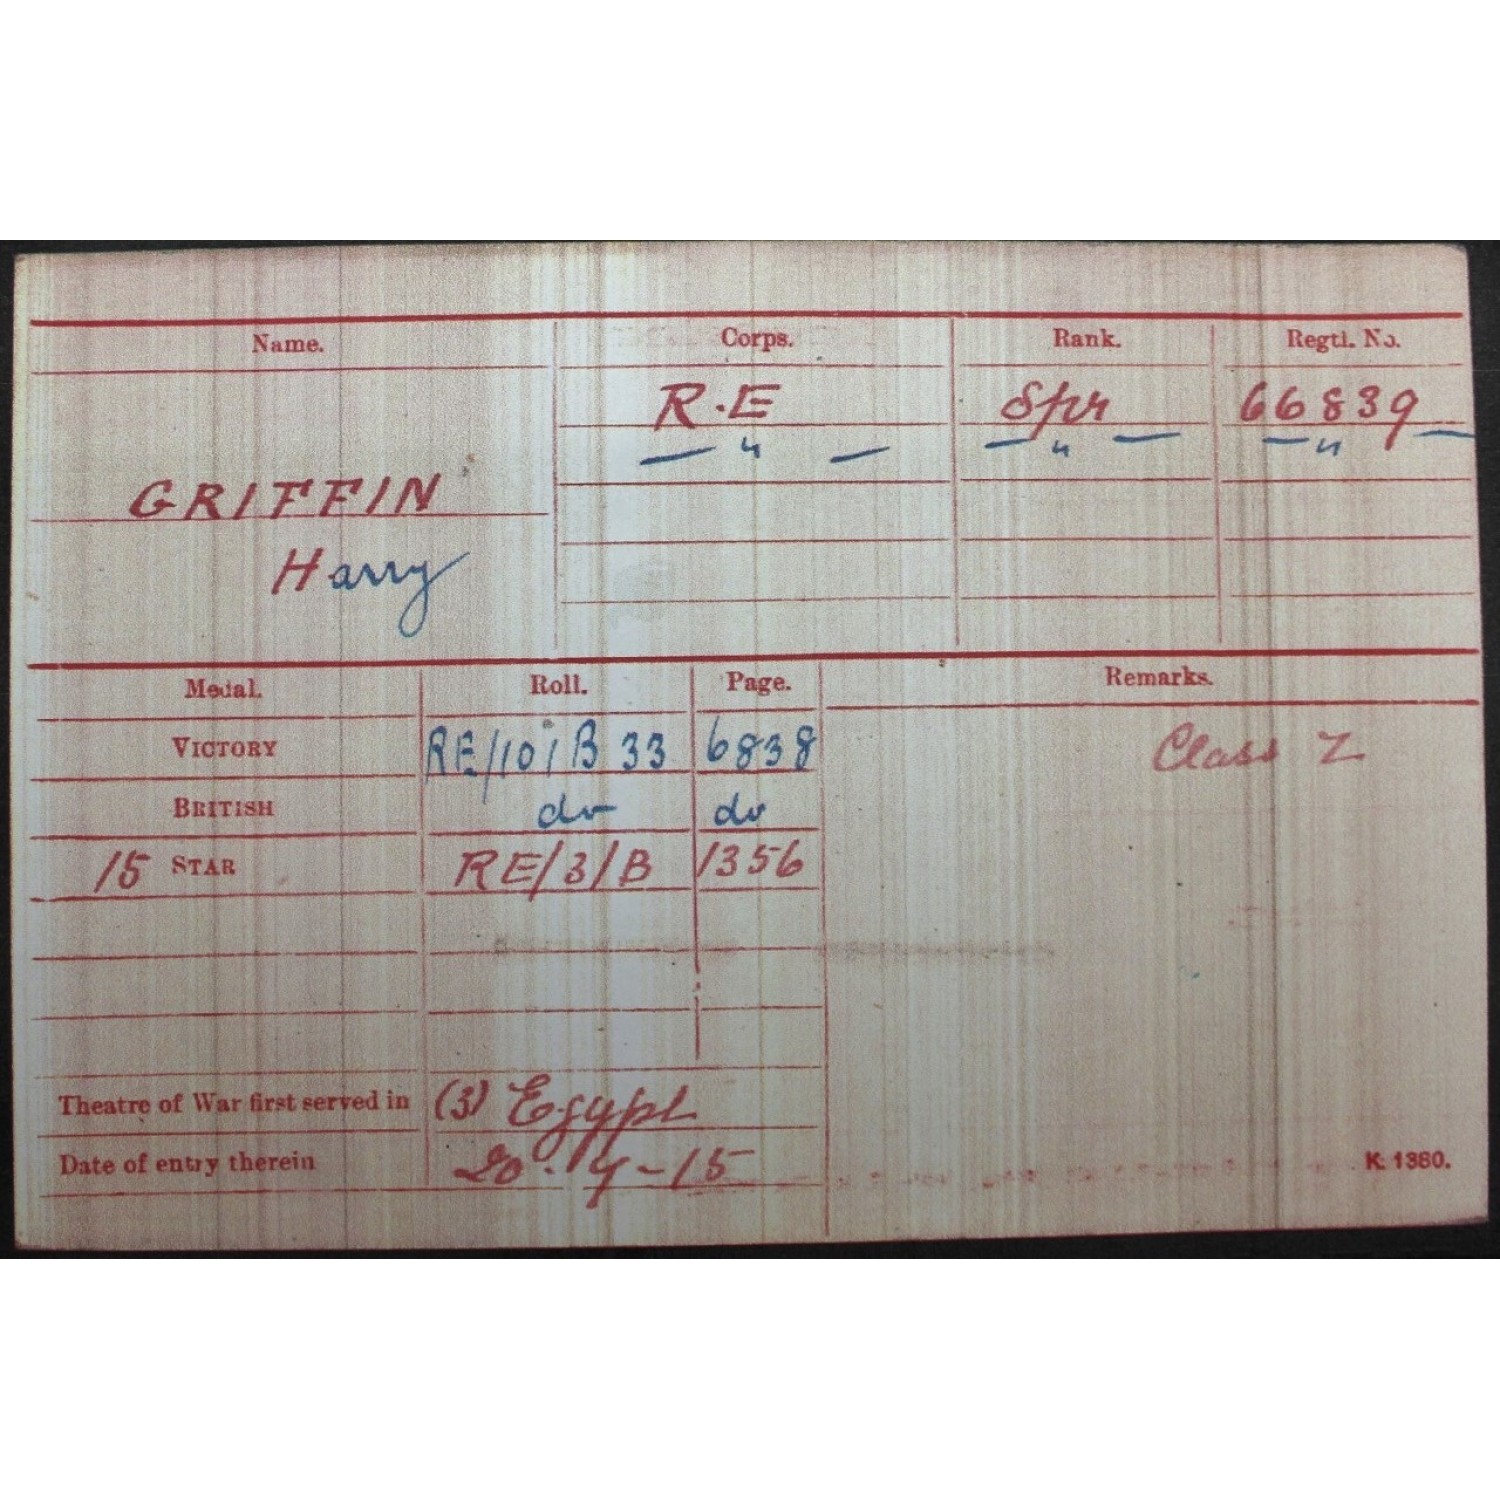 Name. Corps. Rank. Regtl. No.
R.E Spr 66839
— " — — " — — " —
GRIFFIN
Harry
Medal. Roll. Page. Remarks.
VICTORY RE/101B33 6838 Class Z
BRITISH do do
15 STAR RE/3/B 1356
Theatre of War first served in (3) Egypt
Date of entry therein 20-9-15
K. 1380.